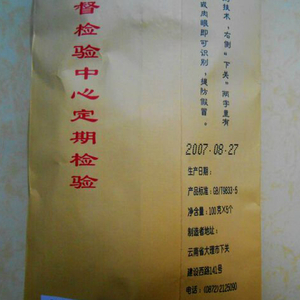 督检验中心定期检验
技术，右侧“下关”两字里有
或肉眼即可识别，提防假冒。
2007-08-27
生产日期：
产品标准：GB/T9833·5
净含量：100克X5个
制造者地址：
云南省大理市下关
建设西路141号
电话：(0872)2125090